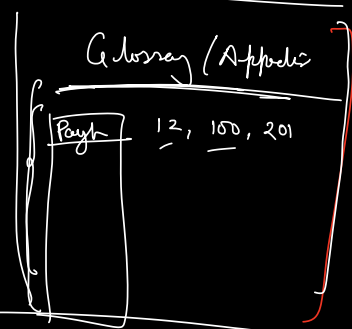 Glossary / Appedix
Payth 12, 100, 201